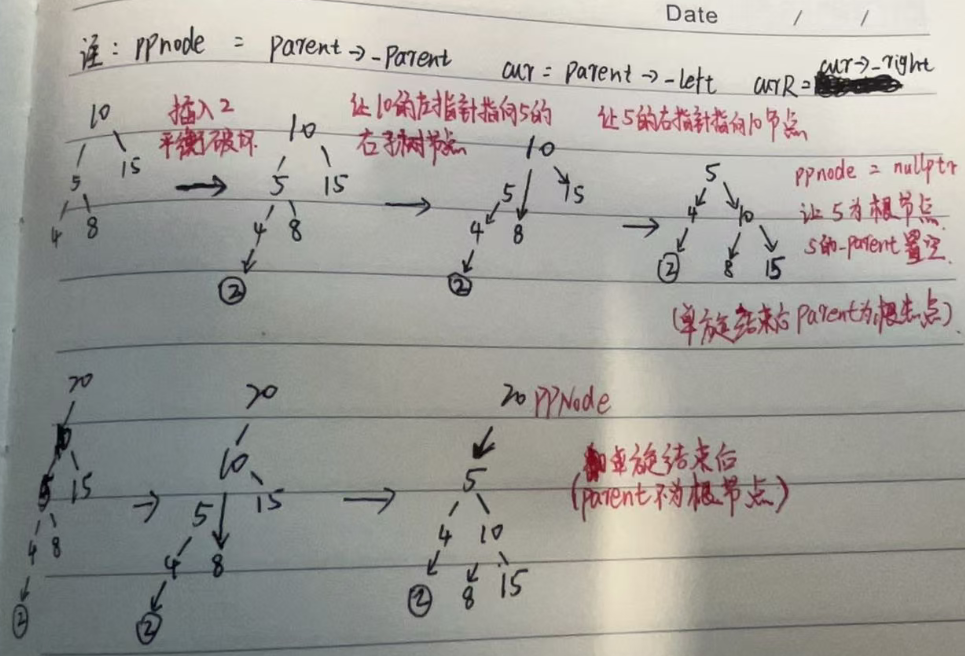 Date / /
注: ppnode = parent→_parent cur = parent→_left curR = cur→_right
插入2 让10的左指针指向5的 让5的右指针指向10节点
平衡被破坏 右子树节点
10 10 10 5 ppnode = nullptr
5 15 5 15 5 15 4 10 让5为根节点
4 8 4 8 4 8 2 8 15 5的_parent置空
2 2
(单旋结束后parent为根节点)
20 20 20 PPNode
10 10 5 单旋结束后
5 15 5 15 4 10 (parent不为根节点)
4 8 4 8 2 8 15
2 2